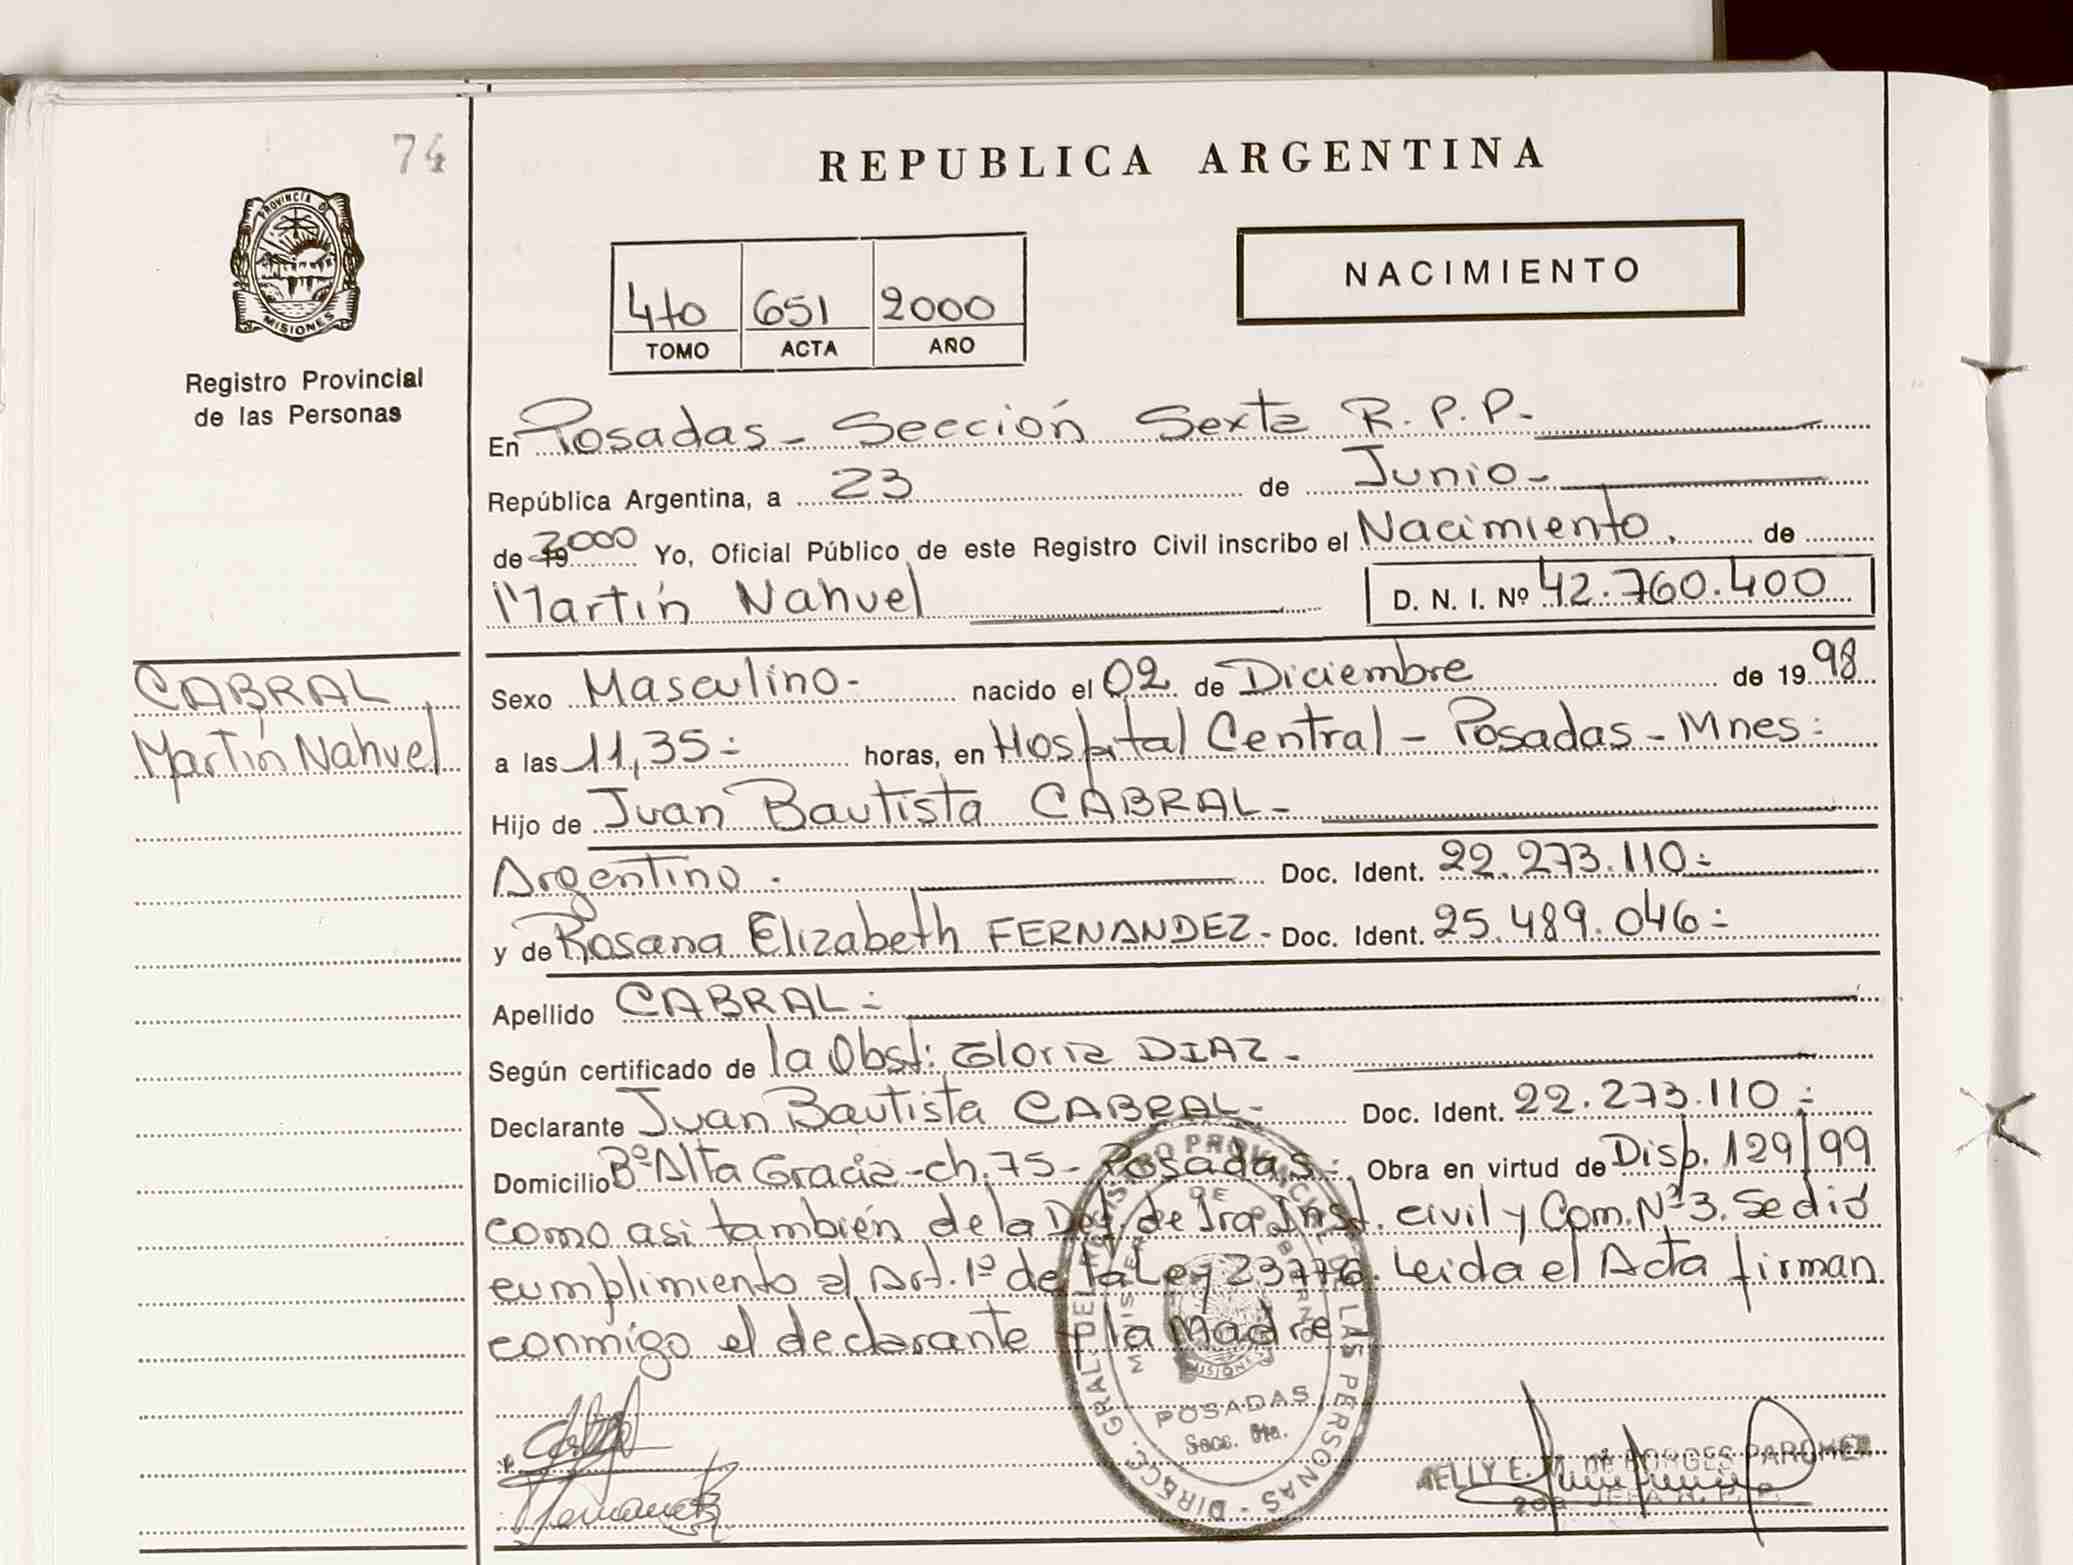 74
REPUBLICA ARGENTINA
PROVINCIA DE
MISIONES
Registro Provincial
de las Personas
4to 651 2000
TOMO ACTA AÑO
NACIMIENTO
En Posadas - Sección Sexta R.P.P.-
República Argentina, a 23 de Junio-
de 19 2000 Yo, Oficial Público de este Registro Civil inscribo el Nacimiento. de
Martín Nahuel D. N. I. Nº 42.760.400
CABRAL
Martín Nahuel
Sexo Masculino- nacido el 02 de Diciembre de 1998
a las 11,35:- horas, en Hospital Central - Posadas - Mnes:
Hijo de Juan Bautista CABRAL-
Argentino. Doc. Ident. 22.273.110:-
y de Rosana Elizabeth FERNANDEZ- Doc. Ident. 25.489.046:-
Apellido CABRAL:-
Según certificado de la Obst: Gloria DIAZ-
Declarante Juan Bautista CABRAL- Doc. Ident. 22.273.110:-
Domicilio Bº Alta Gracia - ch. 75 - Posadas:- Obra en virtud de Disp. 129/99
como asi también de la Def. de 1ra Inst. civil y Com. Nº 3. Se dió
cumplimiento al Art. 1º de la Ley 23776. Leida el Acta firman
conmigo el declarante y la Madre-
DIRECC. GRAL DEL REGISTRO PROVINCIAL DE LAS PERSONAS
MINISTERIO DE GOBIERNO
MISIONES
POSADAS
Secc. 6ta.
Fernandez
NELLY E. M. de BORGES PAROMER
2da JEFA R. P. P.